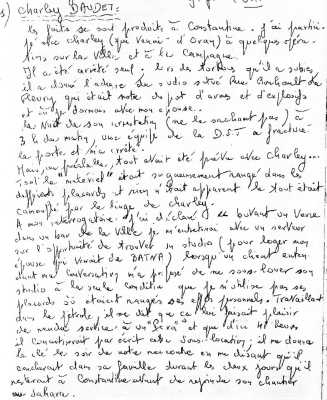 1) Charley DAUDET:
Les faits se sont produits à Constantine. J'ai participé
je avec Charley (qui venait d'Oran) à quelques opéra-
tions sur la ville et à la campagne.
Il a été arrêté seul; lors des tortures qu'il a subies,
il a donné l'adresse du studio situé Rue
Fleury, qui était notre dépôt d'armes et d'explosifs
et où je dormais avec mon épouse.
La nuit de son arrestation (ne le sachant pas) à
3 h du matin, une équipe de la D.S.T a fracturé
la porte et m'a arrêté.
Mais, au préalable, tout avait été prévu avec Charley...
Tout le "matériel" était soigneusement rangé dans les
différents placards et rien n'était apparent le tout était
camouflé par le linge de Charley.
A mon interrogatoire j'ai déclaré "buvant un verre
dans un bar de la ville je m'entretenais avec un serveur
sur l'opportunité de trouver un studio (pour loger mon
épouse qui venait de BATNA) lorsqu'un client enten-
dant ma conversation m'a proposé de me sous-louer son
studio à la seule condition que je n'utilise pas ses
placards où étaient rangés ses effets personnels. Travaillant
dans le pétrole, il me dit que ce lui faisait plaisir
de rendre service à un et que d'ici 48 heures
il concrétiserait par écrit cette sous-location; il me donna
la clé le soir de notre rencontre en me disant qu'il
coucherait dans sa famille durant les deux jours qu'il
resterait à Constantine avant de rejoindre son chantier
au Sahara.